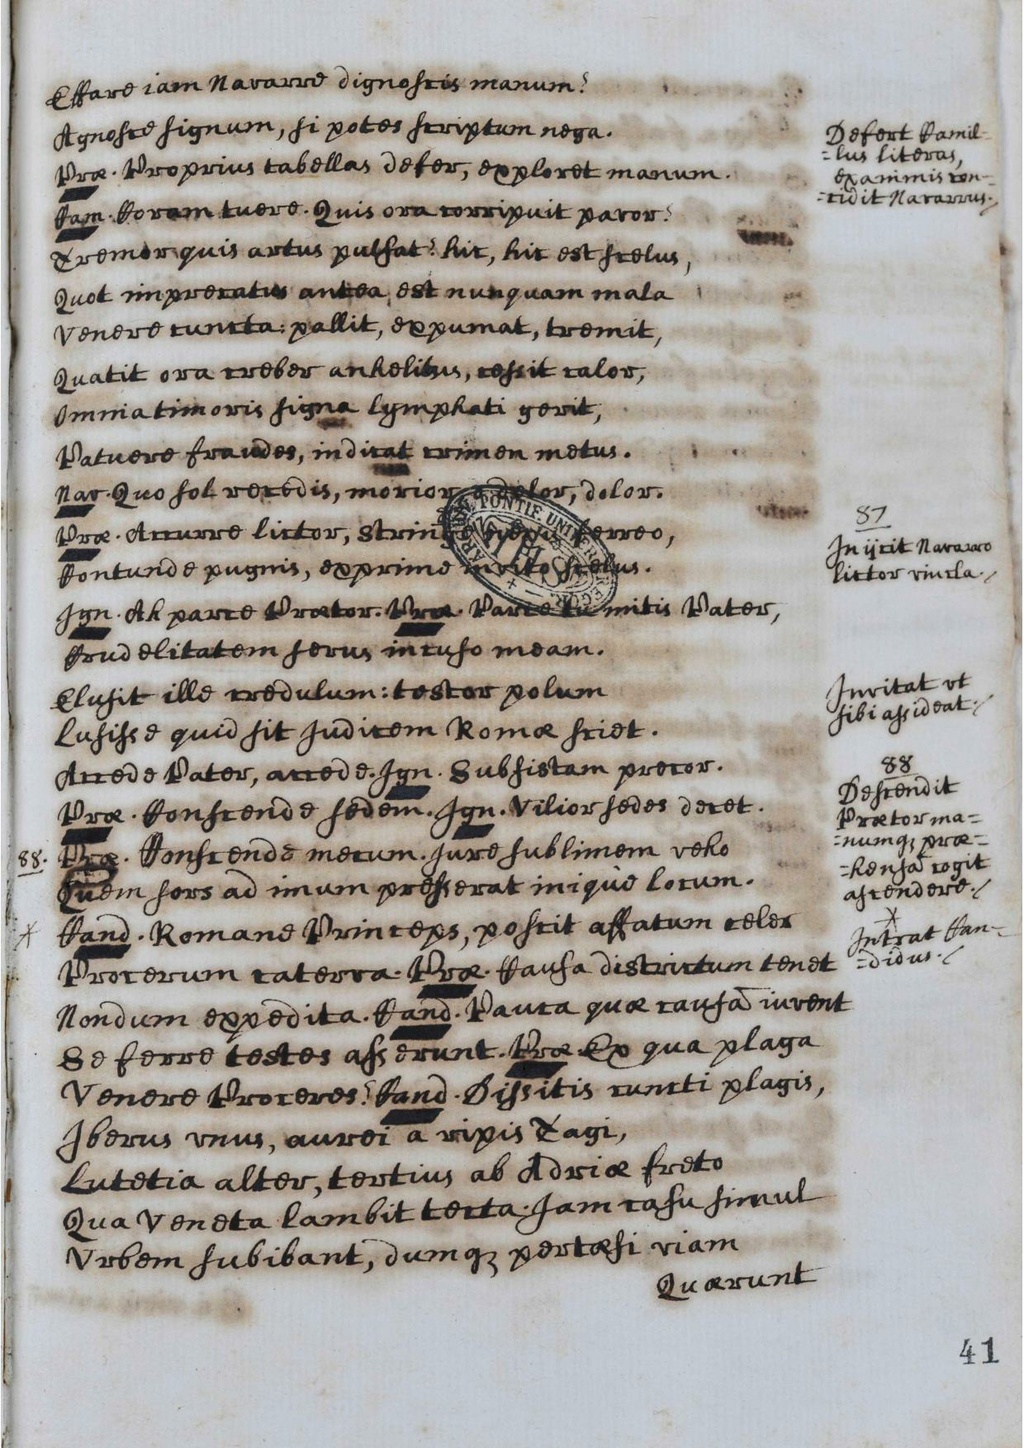 Effare iam Navarre dignoscis manum?
Agnosce signum, si potes scriptum nega.
Præ. Proprius tabellas defer, exploret manum.
Cam. Coram tuere. Quis ora corripuit pavor?
Tremor quis artus pulsat? hic, hic est scelus,
Quot imprecatus antea est nunquam mala
Venere cuncta: pallit, expumat, tremit,
Quatit ora creber anhelitus, cessit calor,
Omnia timoris signa lymphati gerit,
Patuere fraudes, indicat crimen metus.
Nav. Quo sol recedis, morior, o dolor, dolor.
Præ. Accurre lictor, stringe ferreo,
Contunde pugnis, exprime invito scelus.
Ign. Ah parce Prætor. Præ. Parce tu mitis Pater,
Crudelitatem serus incuso meam.
Elusit ille credulum: testor polum
Lusisse quid sit Judicem Romæ sciet.
Accede Pater, accede. Ign. Subsistam precor.
Præ. Conscende sedem. Ign. Vilior sedes decet.
88. Præ. Conscende mecum. Jure sublimem veho
Quem sors ad imum presserat inique locum.
Cand. Romane Princeps, poscit affatum celer
Procerum caterva. Præ. Causa districtum tenet
Nondum expedita. Cand. Pauca quæ causã iuvent
Se ferre testes asserunt. Præ. Ex qua plaga
Venere Proceres? Cand. Dissitis cuncti plagis,
Iberus vnus, aurei a ripis Tagi,
Lutetia alter, tertius ab Adriæ freto
Qua Veneta lambit tecta. Jam casu simul
Vrbem subibant, dumq; pertæsi viam
Quærunt
Defert Camil-
-lus literas,
exanimis con-
-cidit Navarrus.
87
Injicit Navarro
lictor vincla.
Invitat vt
sibi assideat.
88
Descendit
Prætor ma-
-numq; præ-
-hensã cogit
ascendere.
*
Intrat Can-
-didus.
41